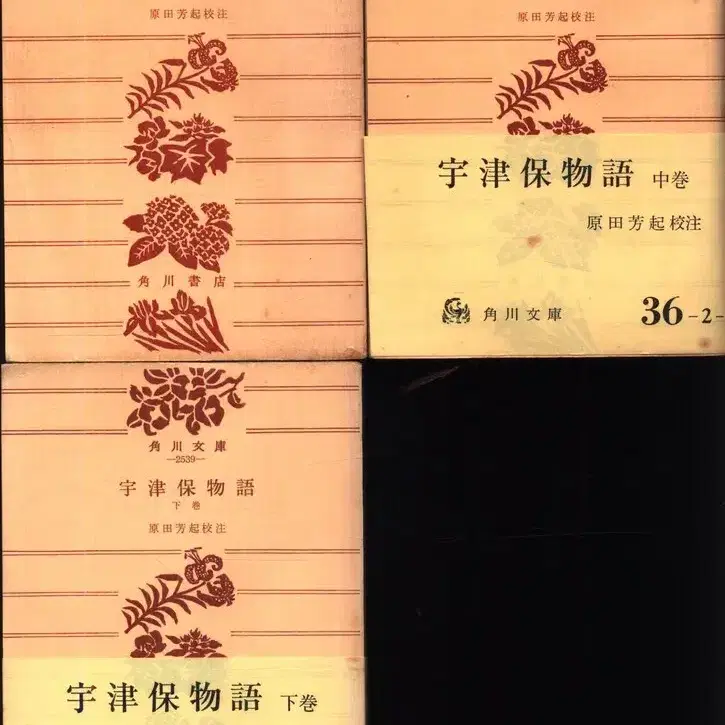 原田芳起校注
角川書店
原田芳起校注
宇津保物語 中巻
原田芳起校注
角川文庫
36-2-
角川文庫
—2539—
宇津保物語
下巻
原田芳起校注
宇津保物語 下巻